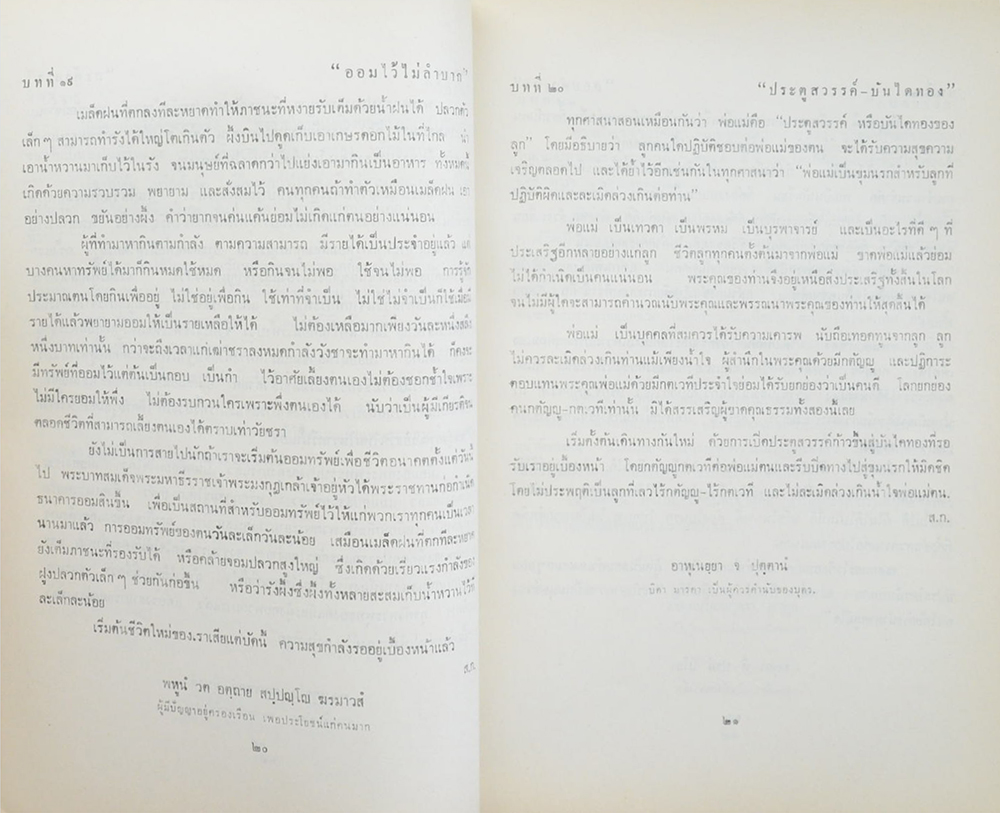 บทที่ ๑๙
“ออมไว้ไม่ลำบาก”
เมล็ดฝนที่ตกลงทีละหยาดทำให้ภาชนะที่หงายรับเต็มด้วยน้ำฝนได้ ปลวกตัว
เล็กๆ สามารถทำรังได้ใหญ่โตเกินตัว ผึ้งบินไปดูดเก็บเอาเกษรดอกไม้ในที่ไกล นำ
เอาน้ำหวานมาเก็บไว้ในรัง จนมนุษย์ที่ฉลาดกว่าไปแย่งเอามากินเป็นอาหาร ทั้งหมดนี้
เกิดด้วยความรวบรวม พยายาม และสั่งสมไว้ คนทุกคนถ้าทำตัวเหมือนเมล็ดฝน เอา
อย่างปลวก ขยันอย่างผึ้ง คำว่ายากจนค่นแค้นย่อมไม่เกิดแก่คนอย่างแน่นอน
ผู้ที่ทำมาหากินตามกำลัง ตามความสามารถ มีรายได้เป็นประจำอยู่แล้ว แต่
บางคนหาทรัพย์ได้มาก็กินหมดใช้หมด หรือกินจนไม่พอ ใช้จนไม่พอ การรู้จัก
ประมาณตนโดยกินเพื่ออยู่ ไม่ใช่อยู่เพื่อกิน ใช้เท่าที่จำเป็น ไม่ใช่ไม่จำเป็นก็ใช้เมื่อมี
รายได้แล้วพยายามออมให้เป็นรายเหลือให้ได้ ไม่ต้องเหลือมากเพียงวันละหนึ่งสลึง
หนึ่งบาทเท่านั้น กว่าจะถึงเวลาแก่เฒ่าชราลงหมดกำลังวังชาจะทำมาหากินได้ ก็คงจะ
มีทรัพย์ที่ออมไว้แต่ต้นเป็นกอบ เป็นกำ ไว้อาศัยเลี้ยงตนเองไม่ต้องชอกช้ำใจเพราะ
ไม่มีใครยอมให้พึ่ง ไม่ต้องรบกวนใครเพราะพึ่งตนเองได้ นับว่าเป็นผู้มีเกียรติจน
ตลอดชีวิตที่สามารถเลี้ยงตนเองได้ตราบเท่าวัยชรา
ยังไม่เป็นการสายไปนักถ้าเราจะเริ่มต้นออมทรัพย์เพื่อชีวิตอนาคตตั้งแต่วันนี้
ไป พระบาทสมเด็จพระมหาธีรราชเจ้าพระมงกุฎเกล้าเจ้าอยู่หัวได้พระราชทานก่อกำเนิด
ธนาคารออมสินขึ้น เพื่อเป็นสถานที่สำหรับออมทรัพย์ไว้ให้แก่พวกเราทุกคนเป็นเวลา
นานมาแล้ว การออมทรัพย์ของตนวันละเล็กวันละน้อย เสมือนเมล็ดฝนที่ตกทีละหยาด
ยังเต็มภาชนะที่รองรับได้ หรือคล้ายจอมปลวกสูงใหญ่ ซึ่งเกิดด้วยเรี่ยวแรงกำลังของ
ฝูงปลวกตัวเล็กๆ ช่วยกันก่อขึ้น หรือว่ารังผึ้งซึ่งผึ้งทั้งหลายสะสมเก็บน้ำหวานไว้ที
ละเล็กละน้อย
เริ่มต้นชีวิตใหม่ของเราเสียแต่บัดนี้ ความสุขกำลังรออยู่เบื้องหน้าแล้ว
ส.ก.
พหูนํ วต อตฺถาย สปฺปญฺโญ ฆรมาวสํ
ผู้มีปัญญาอยู่ครองเรือน เพื่อประโยชน์แก่คนมาก
๒๐
บทที่ ๒๐
“ประตูสวรรค์-บันไดทอง”
ทุกศาสนาสอนเหมือนกันว่า พ่อแม่คือ “ประตูสวรรค์ หรือบันไดทองของ
ลูก” โดยมีอธิบายว่า ลูกคนใดปฏิบัติชอบต่อพ่อแม่ของตน จะได้รับความสุขความ
เจริญตลอดไป และได้ย้ำไว้อีกเช่นกันในทุกศาสนาว่า “พ่อแม่เป็นขุมนรกสำหรับลูกที่
ปฏิบัติผิดและละเมิดล่วงเกินต่อท่าน”
พ่อแม่ เป็นเทวดา เป็นพรหม เป็นบุรพาจารย์ และเป็นอะไรที่ดีๆ ที่
ประเสริฐอีกหลายอย่างแก่ลูก ชีวิตลูกทุกคนตั้งต้นมาจากพ่อแม่ ขาดพ่อแม่แล้วย่อม
ไม่ได้กำเนิดเป็นคนแน่นอน พระคุณของท่านจึงอยู่เหนือสิ่งประเสริฐทั้งสิ้นในโลก
จนไม่มีผู้ใดจะสามารถคำนวณนับพระคุณและพรรณนาพระคุณของท่านให้สุดสิ้นได้
พ่อแม่ เป็นบุคคลที่สมควรได้รับความเคารพ นับถือเทอดทูนจากลูก ลูก
ไม่ควรละเมิดล่วงเกินท่านแม้เพียงน้ำใจ ผู้สำนึกในพระคุณด้วยมีกตัญญู และปฏิการะ
ตอบแทนพระคุณพ่อแม่ด้วยมีกตเวทีประจำใจย่อมได้รับยกย่องว่าเป็นคนดี โลกยกย่อง
คนกตัญญู-กตเวทีเท่านั้น มิได้สรรเสริญผู้ขาดคุณธรรมทั้งสองนี้เลย
เริ่มตั้งต้นเดินทางกันใหม่ ด้วยการเปิดประตูสวรรค์ก้าวขึ้นสู่บันไดทองที่รอ
รับเราอยู่เบื้องหน้า โดยกตัญญูกตเวทีต่อพ่อแม่ตนและรีบปิดทางไปสู่ขุมนรกให้มิดชิด
โดยไม่ประพฤติเป็นลูกที่เลวไร้กตัญญู-ไร้กตเวที และไม่ละเมิดล่วงเกินน้ำใจพ่อแม่ตน.
ส.ก.
อาหุเนยฺยา จ ปุตฺตานํ
บิดา มารดา เป็นผู้ควรคำนับของบุตร.
๒๑